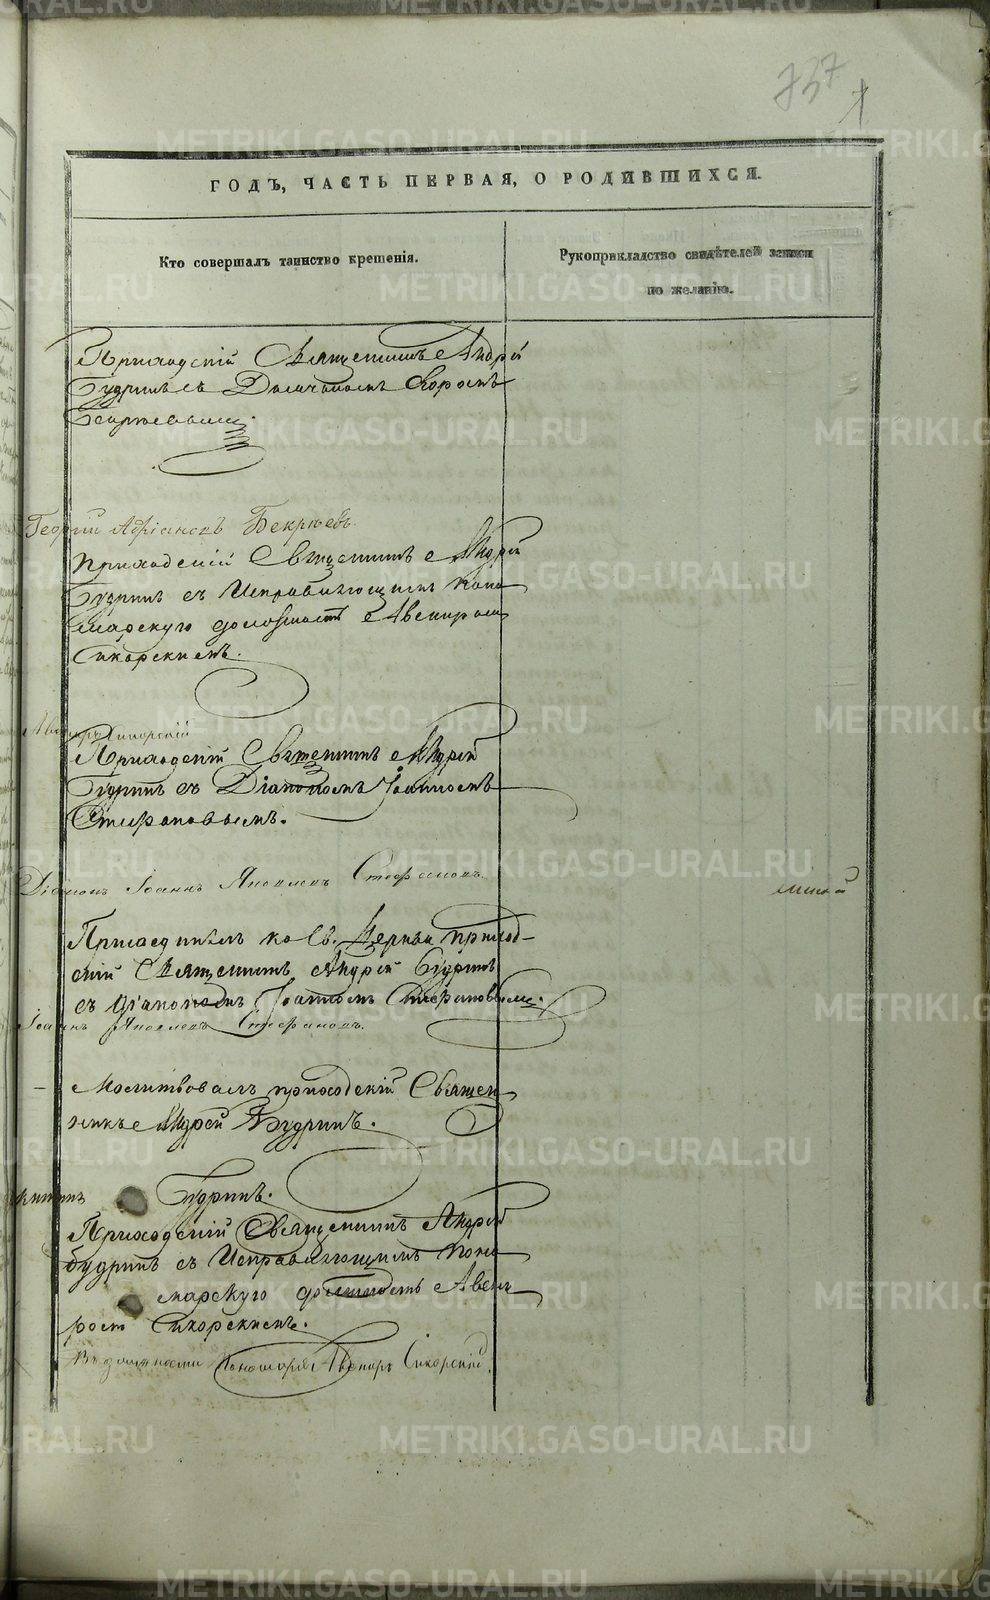 737
ГОДЪ, ЧАСТЬ ПЕРВАЯ, О РОДИВШИХСЯ.
Кто совершалъ таинство крещенія.
Рукоприкладство свидѣтелей записи
по желанію.
Приходскій Священникъ Андрей
Будринъ съ
Георгій Бекрѣевъ.
Приходскій Священникъ Андрей
Будринъ съ Исправляющимъ поно
марскую должность Авениромъ
Сикорскимъ.
Авениръ Сикорскій
Приходскій Священникъ Андрей
Будринъ съ Діакономъ Іоанномъ
Стефановымъ.
Діаконъ Іоаннъ Яковлевъ Стефановъ.
Присоединилъ ко Св. Церкви приход-
скій Священникъ Андрей Будринъ
съ діакономъ Іоанномъ Стефановымъ.
Іоаннъ Яковлевъ Стефановъ.
Молитвовалъ приходскій Священ
никъ Андрей Будринъ.
Будринъ.
Приходскій Священникъ Андрей
Будринъ съ Исправляющимъ поно
марскую должность Авени
ромъ Сикорскимъ.
въ должности Пономаря Авениръ Сикорскій
METRIKI.GASO-URAL.RU